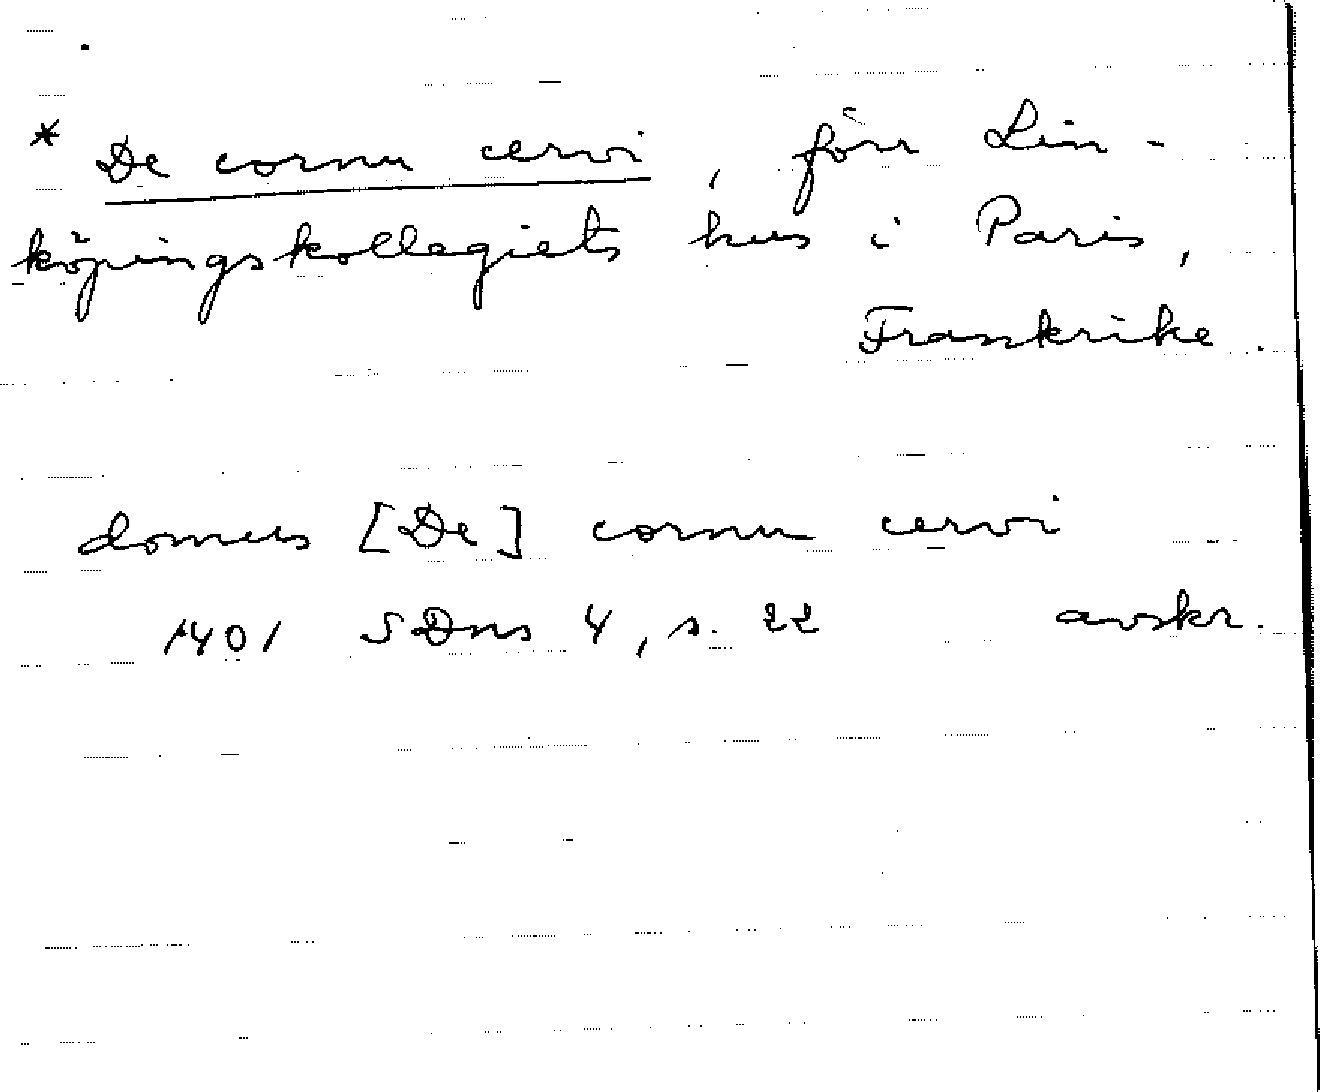 * De cornu cervi, förr Lin-
köpingskollegiets hus i Paris,
Frankrike.
domus [De] cornu cervi
1401 SDns 4, s. 22 avskr.